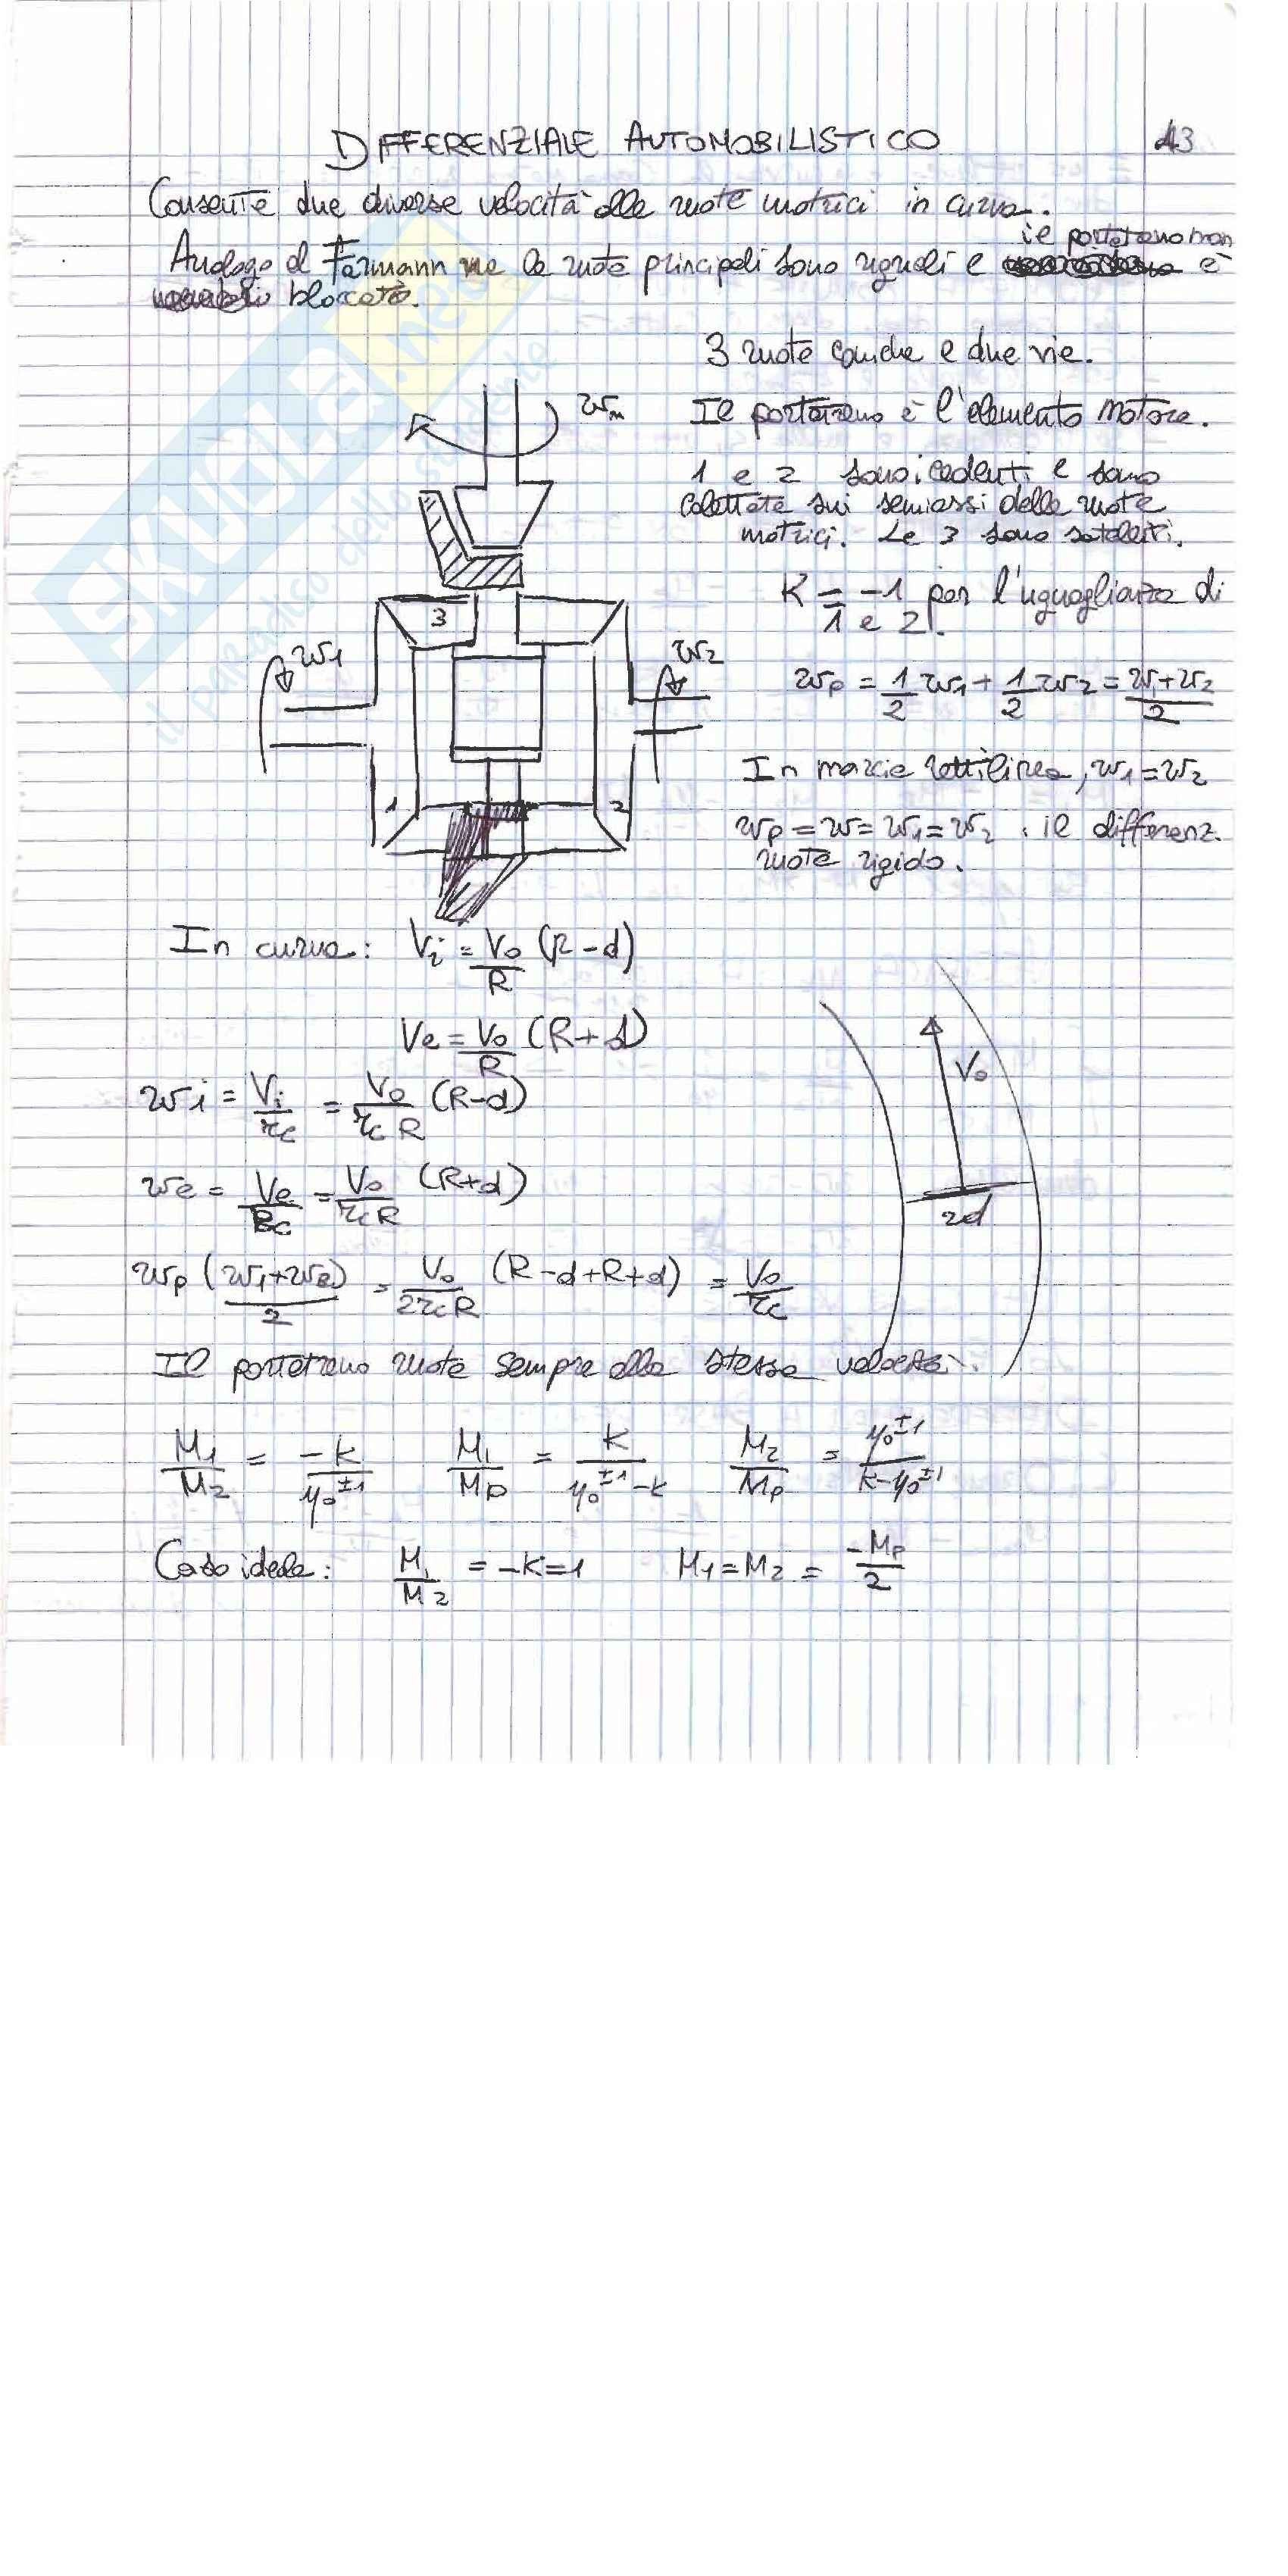 DIFFERENZIALE AUTOMOBILISTICO 43
Consente due diverse velocità alle ruote motrici in curva.
il portatreno non
Analogo al Fermann ma le ruote principali sono uguali e è
bloccato.
3 ruote coniche e due vie.
Il portatreno è l'elemento motore.
1 e 2 sono i cedenti e sono
calettate sui semiassi delle ruote
motrici. Le 3 sono satelliti.
K = -1 per l'uguaglianza di
1 e 2.
ωm
3
ω1
ω2
1 2
ωp = 1/2 ω1 + 1/2 ω2 = (ω1+ω2)/2
In marcia rettilinea, ω1 = ω2
ωp = ω = ω1 = ω2 . il differenz.
ruota rigido.
In curva: Vi = Vo/R (R-d)
Ve = Vo/R (R+d)
ωi = Vi/rc = Vo/(rc R) (R-d)
ωe = Ve/Rc = Vo/(rc R) (R+d)
ωp (ω1+ω2)/2 = Vo/(2 rc R) (R-d+R+d) = Vo/rc
Vo
2d
Il portatreno ruota sempre alla stessa velocità.
M1/M2 = -k/η0^±1 M1/Mp = k/(η0^±1 - k) M2/Mp = η0^±1/(k-η0^±1)
Caso ideale: M1/M2 = -k=1 M1=M2 = -Mp/2
SKUOLA.net
il paradiso dello studente